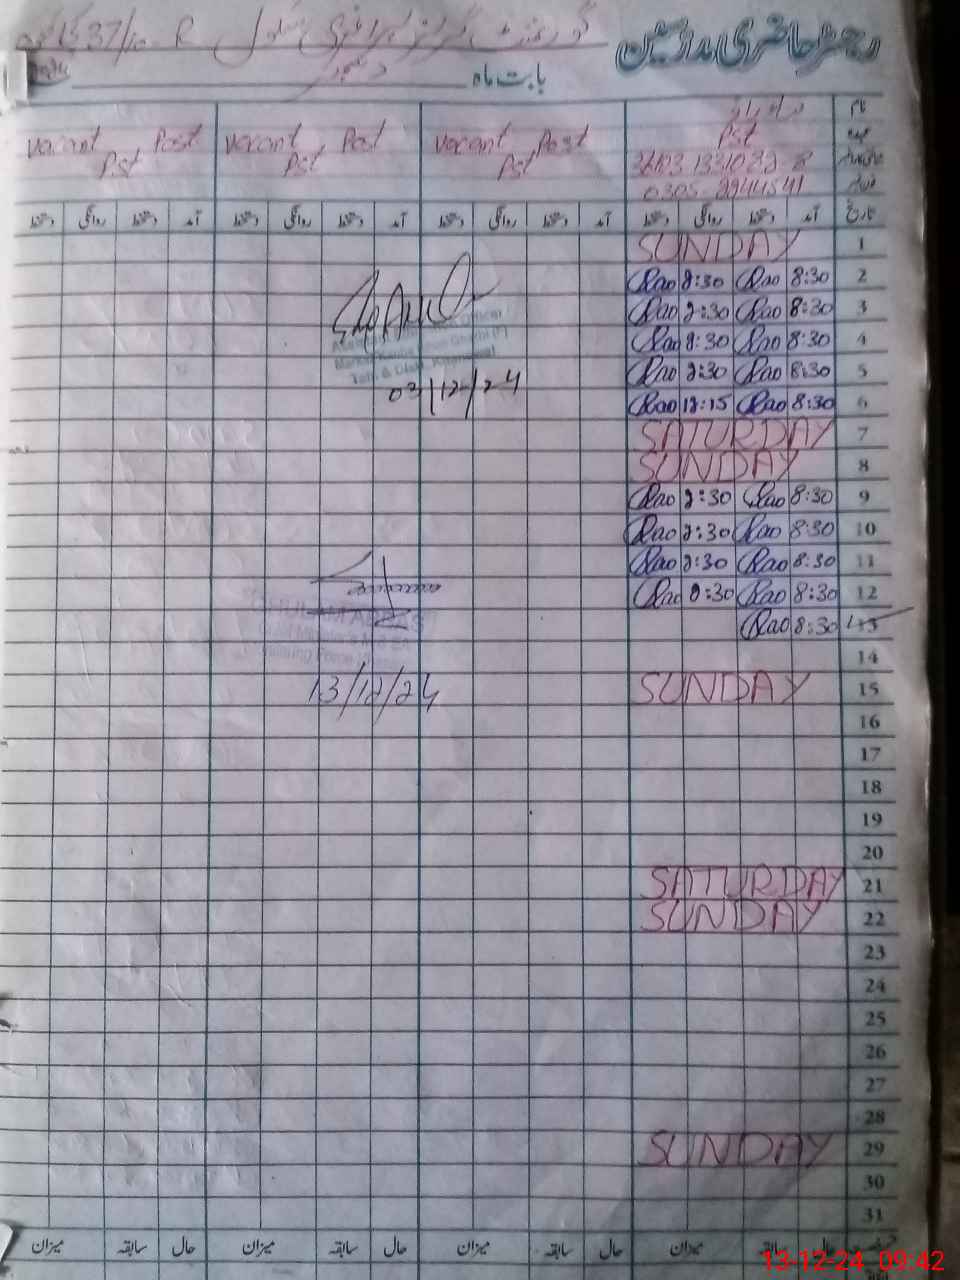 رجسٹر حاضری مدرسین
گورنمنٹ گرلز پرائمری سکول 37/10-R
بابت ماہ دسمبر
نام
عہدہ Pst Vacant Post Pst Vacant Post Pst Vacant Post Pst
0305-2944541
تاریخ آمد دستخط روانگی دستخط آمد دستخط روانگی دستخط آمد دستخط روانگی دستخط آمد دستخط روانگی دستخط
1 SUNDAY
2 8:30 Rao 2:30 Rao
3 8:30 Rao 2:30 Rao
4 8:30 Rao 2:30 Rao
5 8:30 Rao 2:30 Rao
6 8:30 Rao 12:15 Rao
7 SATURDAY
8 SUNDAY
9 8:30 Rao 2:30 Rao
10 8:30 Rao 2:30 Rao
11 8:30 Rao 2:30 Rao
12 8:30 Rao 2:30 Rao
13 8:30 Rao
14
15 SUNDAY
16
17
18
19
20
21 SATURDAY
22 SUNDAY
23
24
25
26
27
28
29 SUNDAY
30
31
03/12/24
GHULAM ABBAS
13/12/24
حال سابقہ میزان حال سابقہ میزان حال سابقہ میزان حال سابقہ میزان
13-12-24 09:42